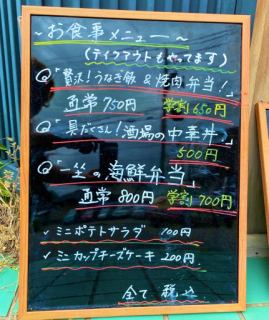 ~お食事メニュー~
(テイクアウトもやってます)
「贅沢!うなぎ飯&焼肉弁当!」
通常750円 学割650円
「具だくさん!酒場の中華丼」
500円
「一笙の海鮮弁当」
通常800円 学割700円
✓ミニポテトサラダ 100円
✓ミニカップチーズケーキ 200円
全て税込